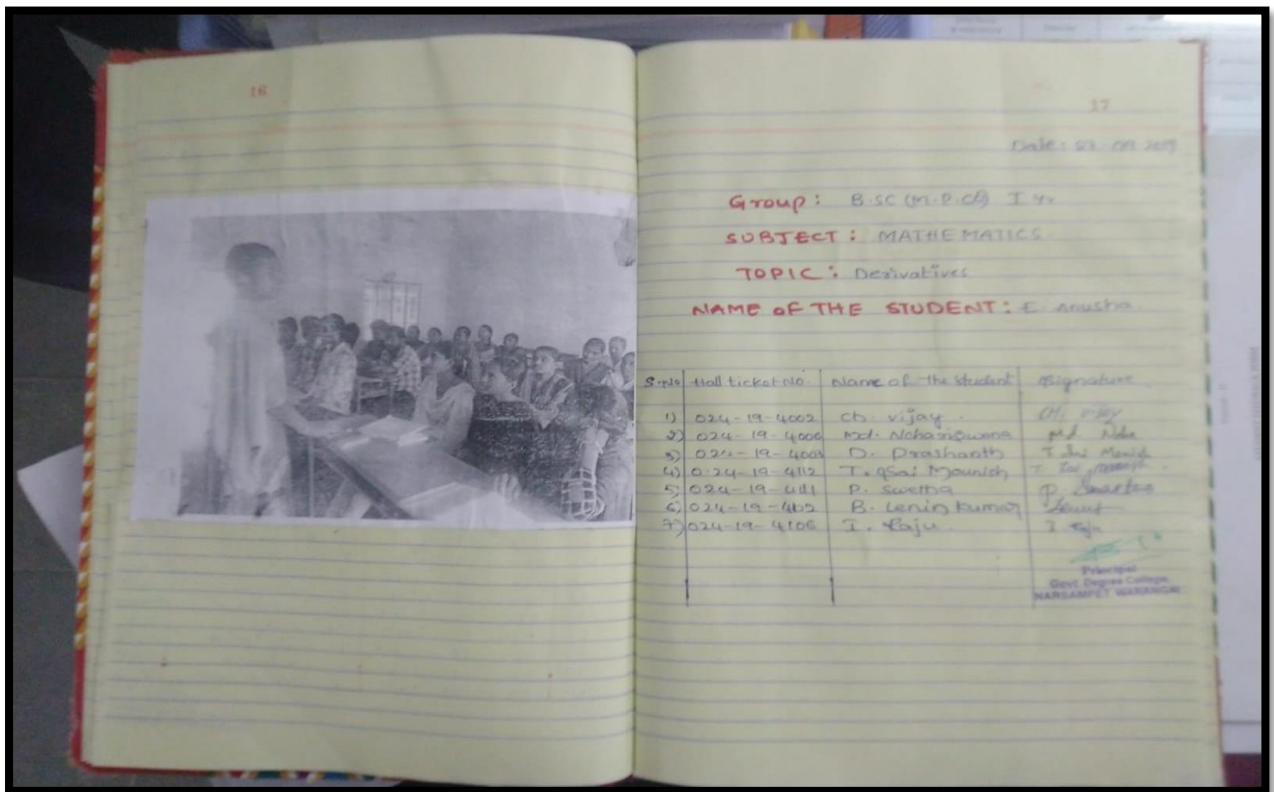 16
17
Date:
Group: B.SC (M.P.CS) I Yr
SUBJECT: MATHEMATICS
TOPIC: Derivatives
NAME OF THE STUDENT: E. Anusha
S.No Hall ticket No. Name of the student Signature
1) 024-19-4002 Ch. Vijay. Ch. Vijay
2) 024-19-4006 Md. Md. Noha
3) 024-19-4003 D. Prashanth
4) 024-19-4112 T. Sai Mounish
5) 024-19- P. Swetha P.
6) 024-19- B. Lenin kumar
7) 024-19-4106 I. Raju. I. Raju
Principal
Govt Degree College
NARSAMPET WARANGAL